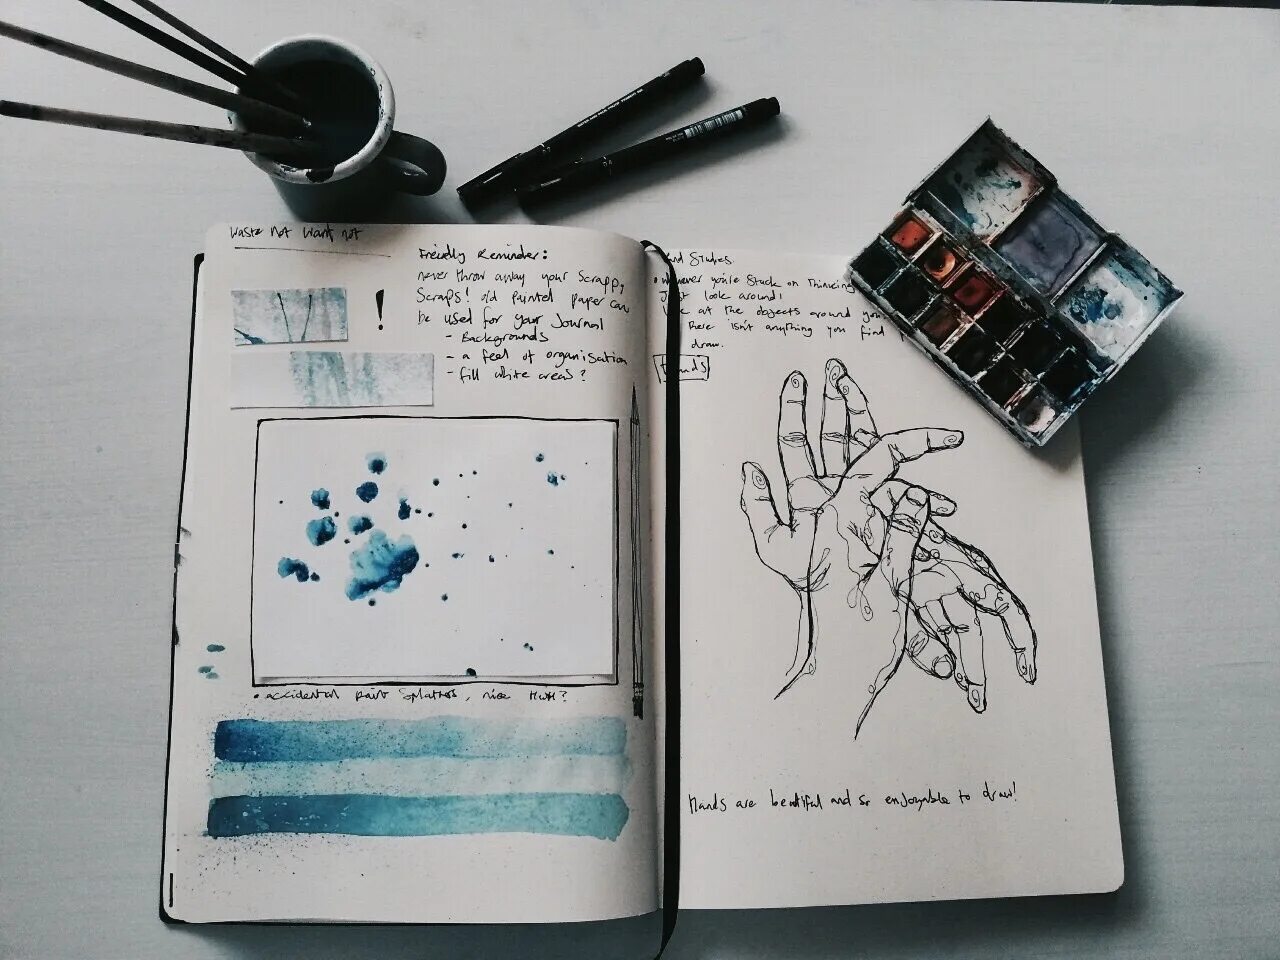 Waste not want not
Friendly Reminder:
never throw away your scrappy
Scraps! old painted paper can
be used for your Journal
- Backgrounds
- a feel of organisation
- fill white areas?
!
• accidental paint splatters, nice huh?
nd Studies
• whenever you're stuck on thinking
Just look around!
at the objects around you
there isn't anything you find
draw.
Hands
Hands are beautiful and so enjoyable to draw!